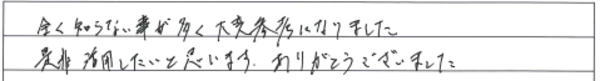 全く知らない事が多く大変参考になりました
是非活用したいと思います。ありがとうございました